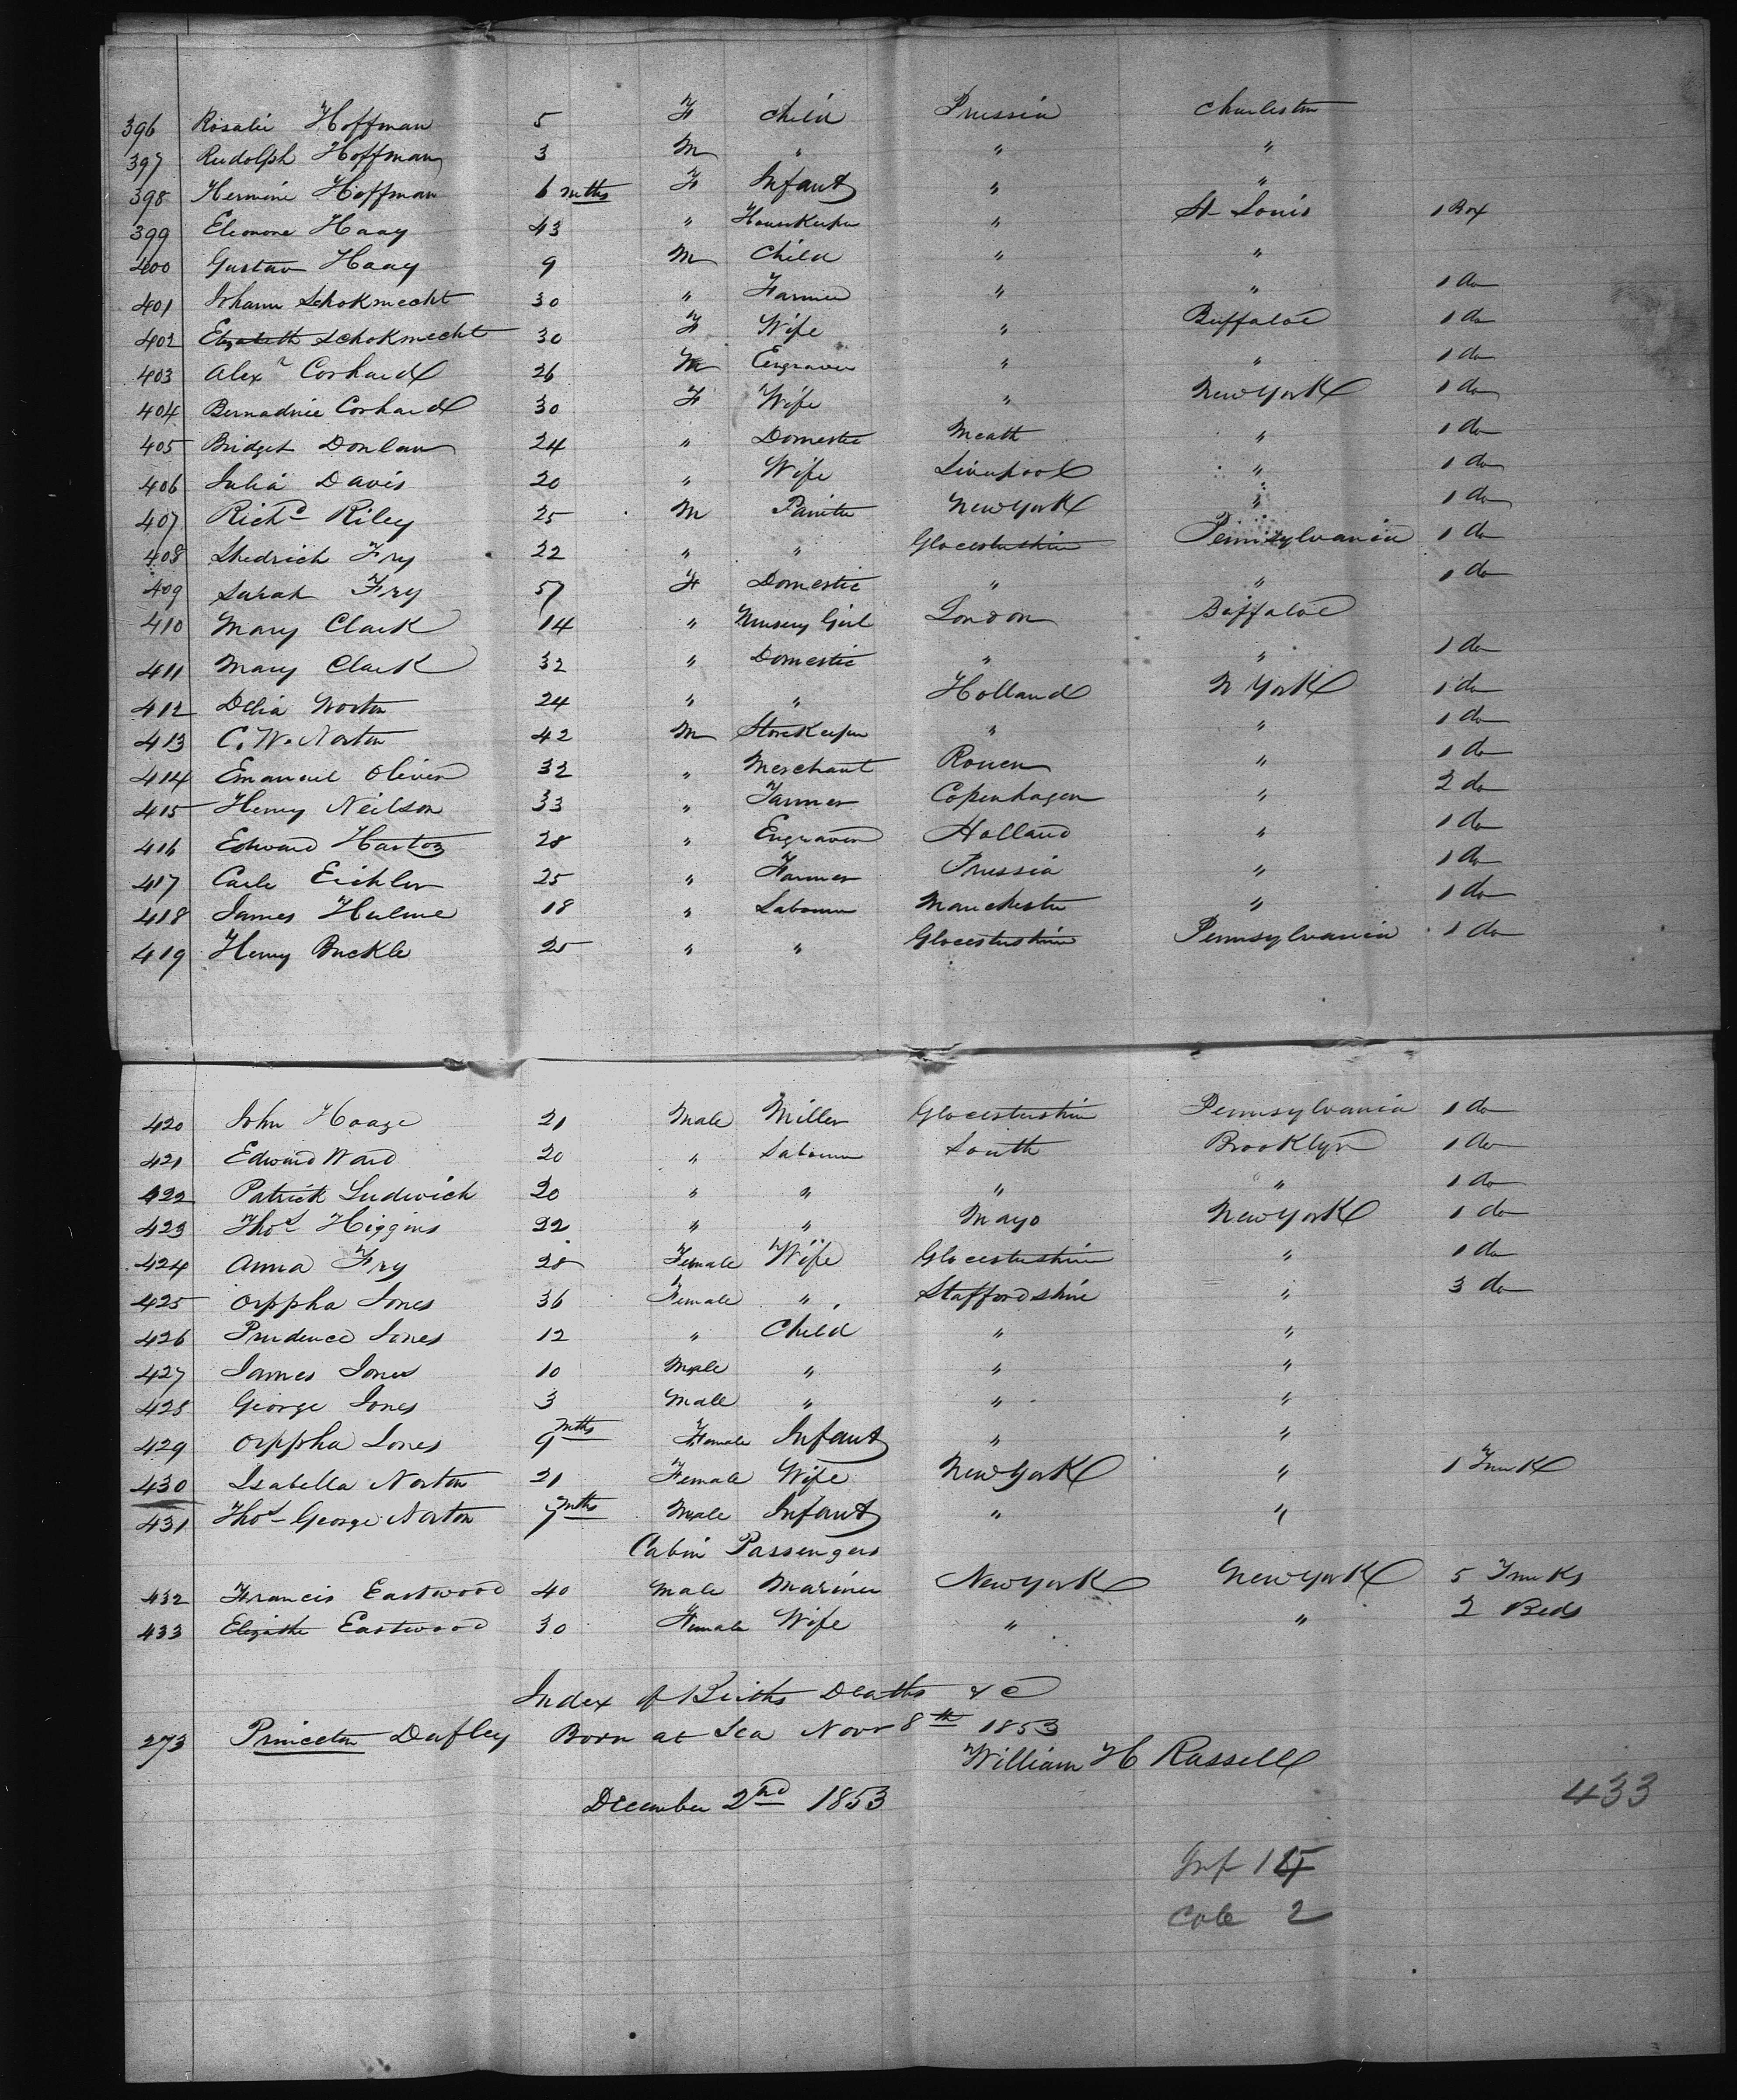 396 Rosalie Hoffman 5 F Child Prussia Charleston
397 Rudolph Hoffman 3 M " " "
398 Hermine Hoffman 6 mths F Infant " "
399 Eleonore Haag 43 " Housekeeper " St Louis 1 Box
400 Gustav Haag 9 M Child " "
401 Johann Schoknecht 30 " Farmer " " 1 do
402 Elizabeth Schoknecht 30 F Wife " Buffaloe 1 do
403 Alexr Corhard 26 M Engraver " " 1 do
404 Corhard 30 F Wife " New York 1 do
405 Bridget Donlan 24 " Domestic Meath " 1 do
406 Julia Davis 20 " Wife Liverpool " 1 do
407 Richd Riley 25 M Painter New York " 1 do
408 Shedrich Fry 22 " " Glocestershire Pennsylvania 1 do
409 Sarah Fry 57 F Domestic " " 1 do
410 Mary Clark 14 " Nursery Girl London Buffaloe
411 Mary Clark 32 " Domestic " " 1 do
412 Delia Norton 24 " " Holland N York 1 do
413 C. W. Norton 42 M Storekeeper " " 1 do
414 Emanuel Oliven 32 " Merchant Rouen " 1 do
415 Henry Neilson 33 " Farmer Copenhagen " 2 do
416 Edward Hartog 28 " Engraver Holland " 1 do
417 Carle Eichler 25 " Farmer Prussia " 1 do
418 James Hulme 18 " Labourer Manchester " 1 do
419 Henry Buckle 25 " " Glocestershire Pennsylvania 1 do
420 John Hoage 21 Male Miller Glocestershire Pennsylvania 1 do
421 Edward Ward 20 " Labourer Louth Brooklyn 1 do
422 Patrick Ludwich 20 " " " " 1 do
423 Thos Higgins 22 " " Mayo New York 1 do
424 Anna Fry 28 Female Wife Glocestershire " 1 do
425 Orppha Jones 36 Female " Staffordshire " 3 do
426 Prudence Jones 12 " Child " "
427 James Jones 10 Male " " "
428 George Jones 3 Male " " "
429 Orppha Jones 9 mths Female Infant " "
430 Isabella Norton 21 Female Wife New York " 1 Trunk
431 Thos George Norton 7 mths Male Infant " "
Cabin Passengers
432 Francis Eastwood 40 Male Mariner New York New York 5 Trunks
433 Elizathe Eastwood 30 Female Wife " " 2 Beds
Index of Births Deaths & c
273 Princeton Dufley Born at Sea Novr 8th 1853
William H Russell
December 2nd 1853
433
Inf 15
Cab 2